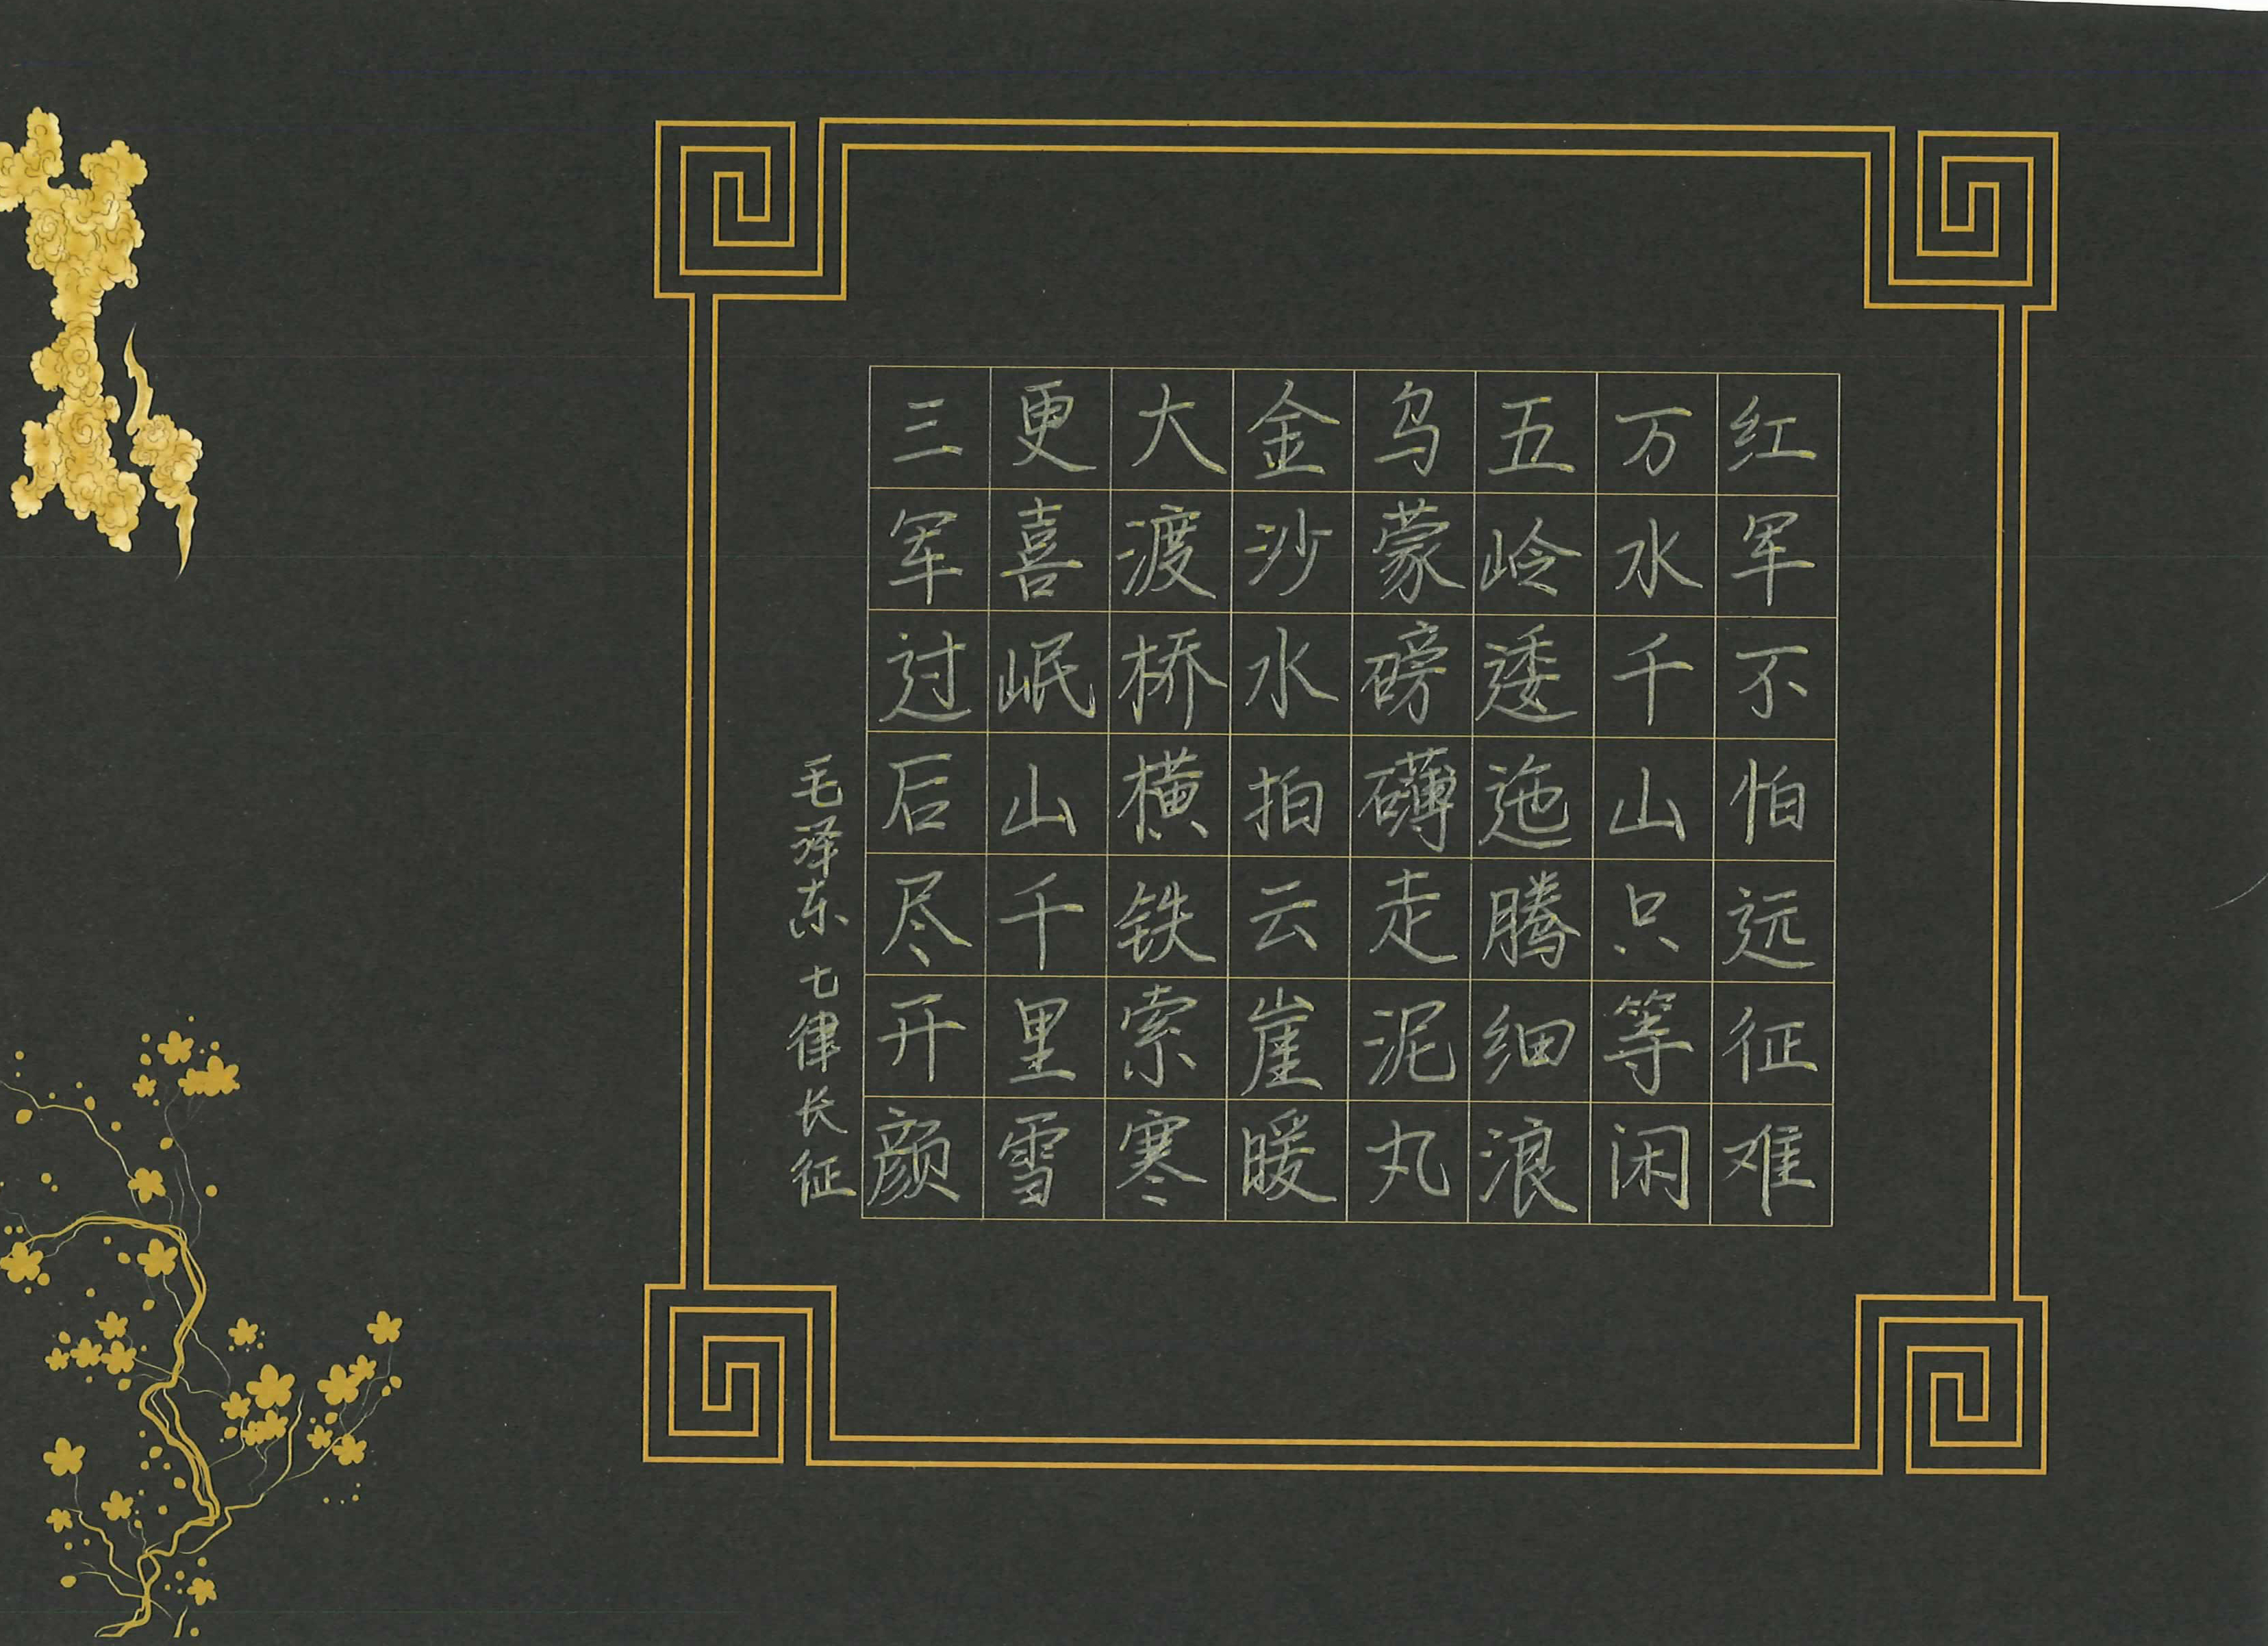 红军不怕远征难
万水千山只等闲
五岭逶迤腾细浪
乌蒙磅礴走泥丸
金沙水拍云崖暖
大渡桥横铁索寒
更喜岷山千里雪
三军过后尽开颜
毛泽东 七律长征